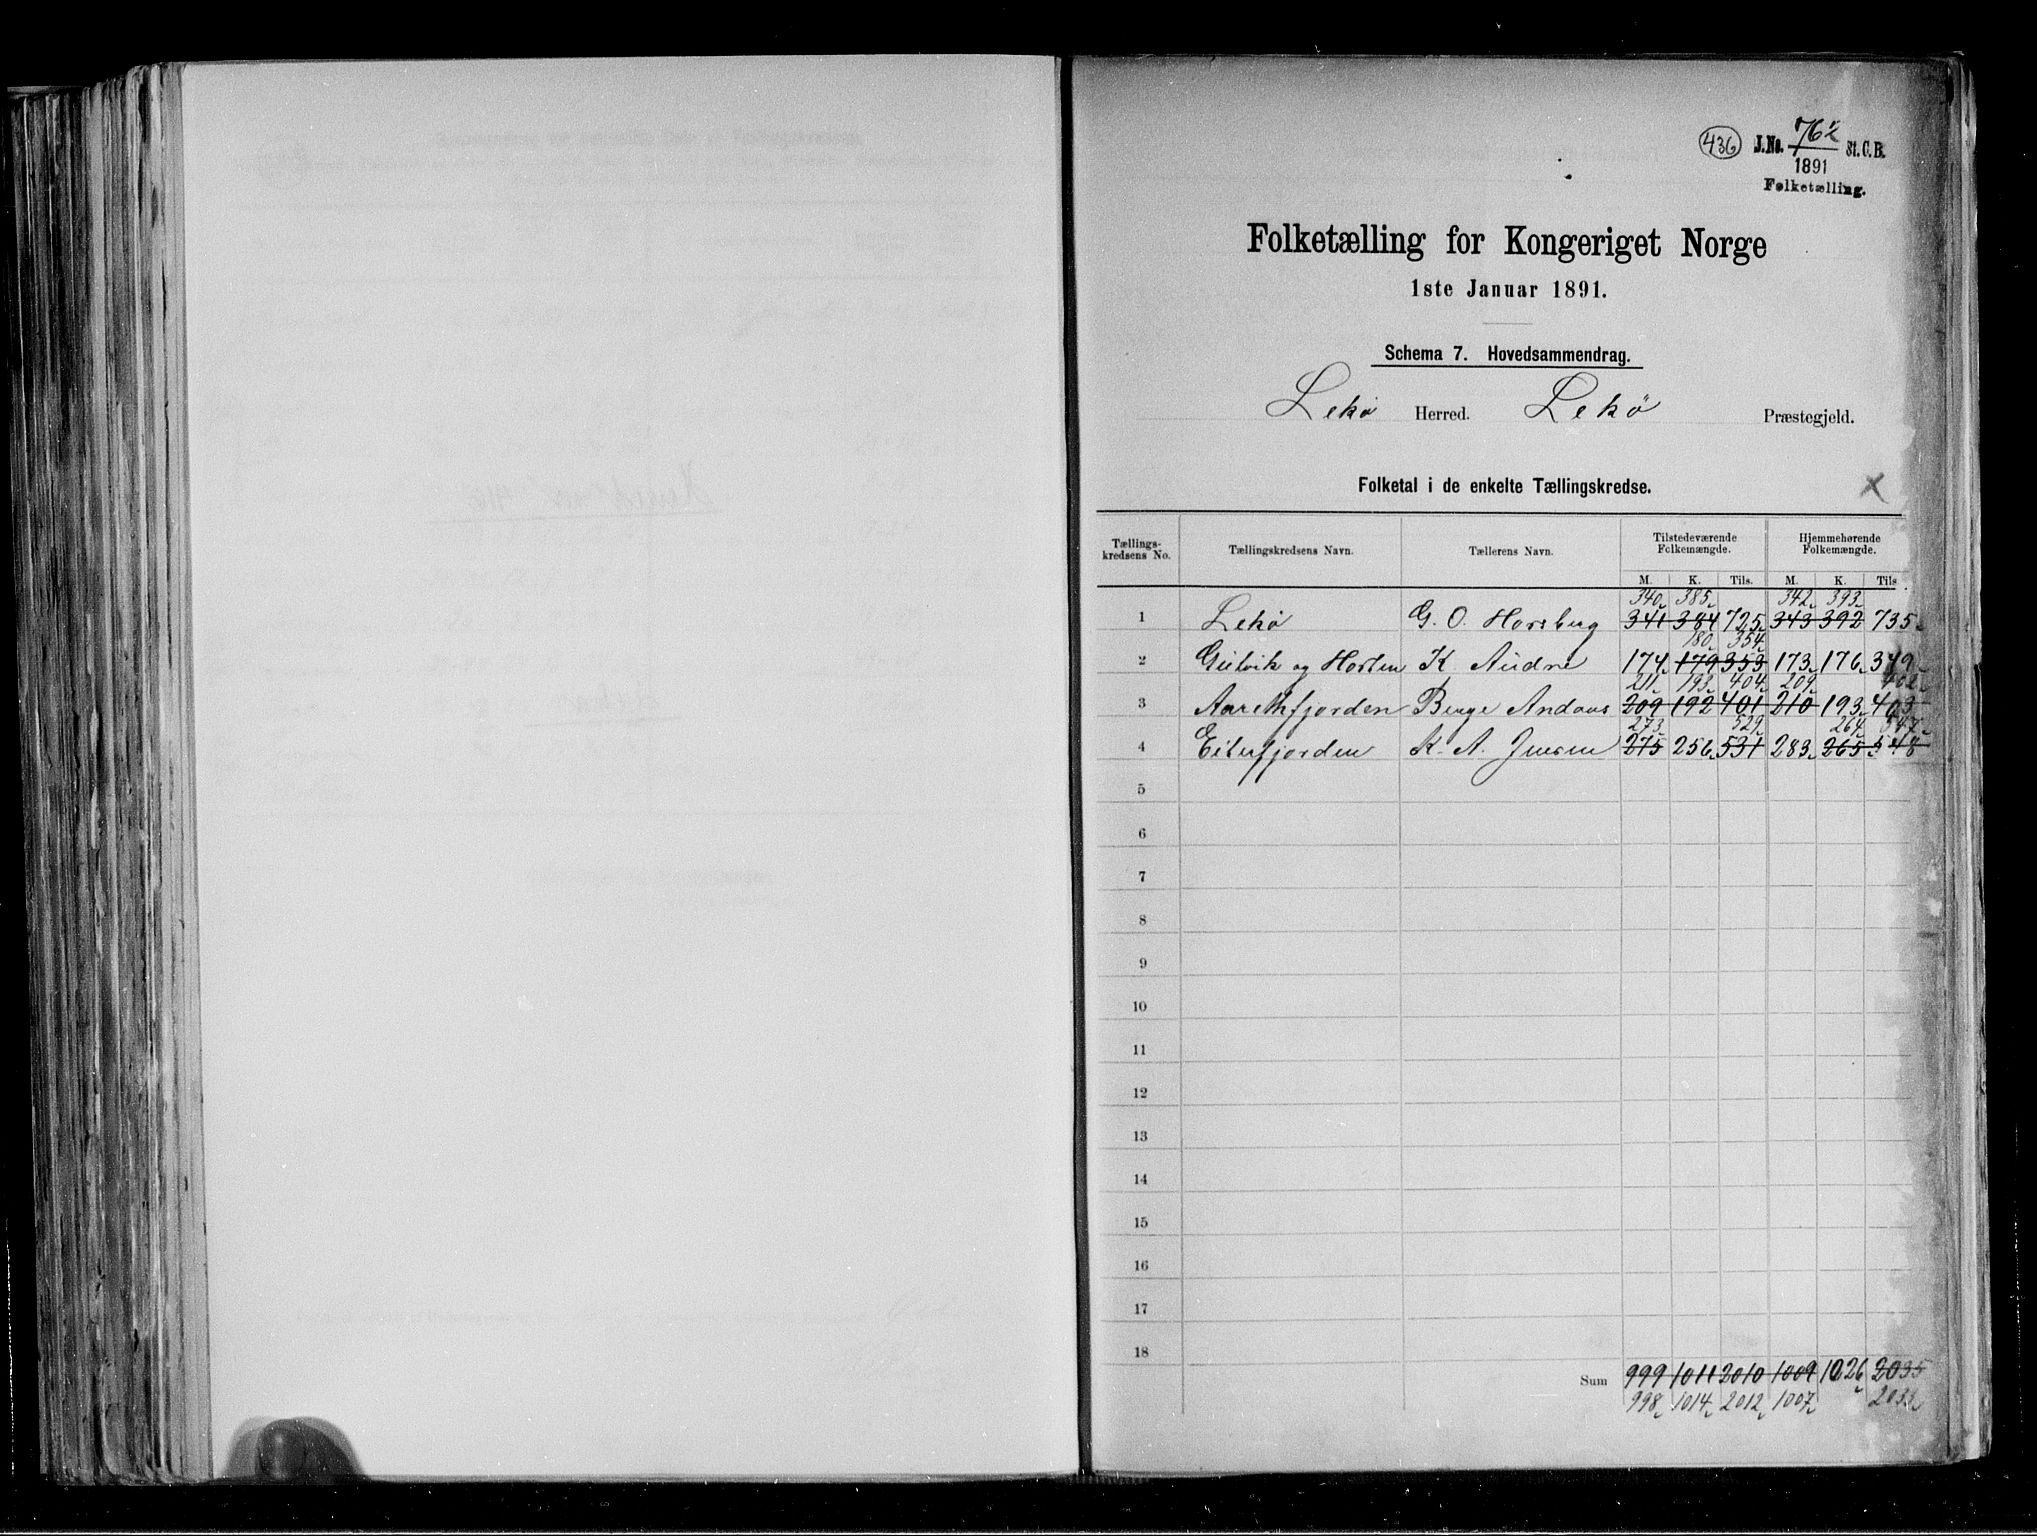 436 J.No. 76 1/2 St.C.B.
1891
Folketælling.
Folketælling for Kongeriget Norge
1ste Januar 1891.
Schema 7. Hovedsammendrag.
Lekø Herred. Lekø Præstegjeld.
Folketal i de enkelte Tællingskredse.
X
Tællings-kredsens No. Tællingskredsens Navn. Tællerens Navn. Tilstedeværende Folkemængde. Hjemmehørende Folkemængde.
M. K. Tils. M. K. Tils.
340 385 342 393
1 Lekø G. O. Horsberg 341 384 725 343 392 735
180 354
2 Gutvik og Horten K Audne 174 179 353 173 176 349
211 193 404 209 402
3 Aarethfjorden Berge 209 192 401 210 193 403
273 529 264 547
4 Eiterfjorden K. A. Jensen 275 256 531 283 265 548
5
6
7
8
9
10
11
12
13
14
15
16
17
18
Sum 999 1011 2010 1009 1026 2035
998 1014 2012 1007 2033